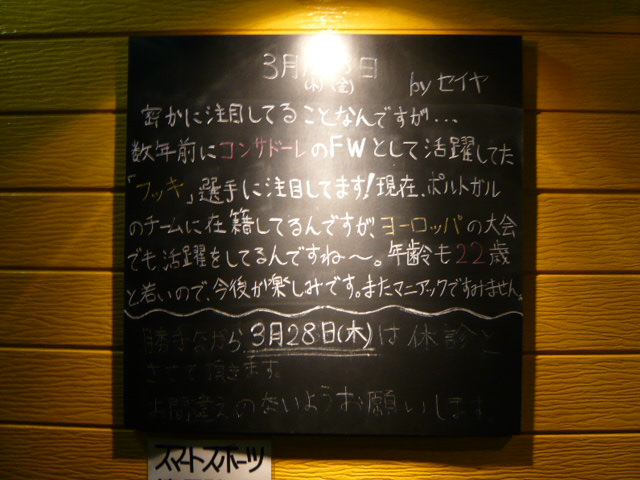 3月 日 by セイヤ
(木)(金)
密かに注目してることなんですが...
数年前にコンサドーレのFWとして活躍してた
「フッキ」選手に注目してます!現在、ポルトガル
のチームに在籍してるんですが、ヨーロッパの大会
でも活躍をしてるんですね〜。年齢も22歳
と若いので、今後が楽しみです。またマニアックですみません。
勝手ながら3月28日(木)は休診と
させて頂きます。
お間違えのないようお願いします。
スマートスポーツ